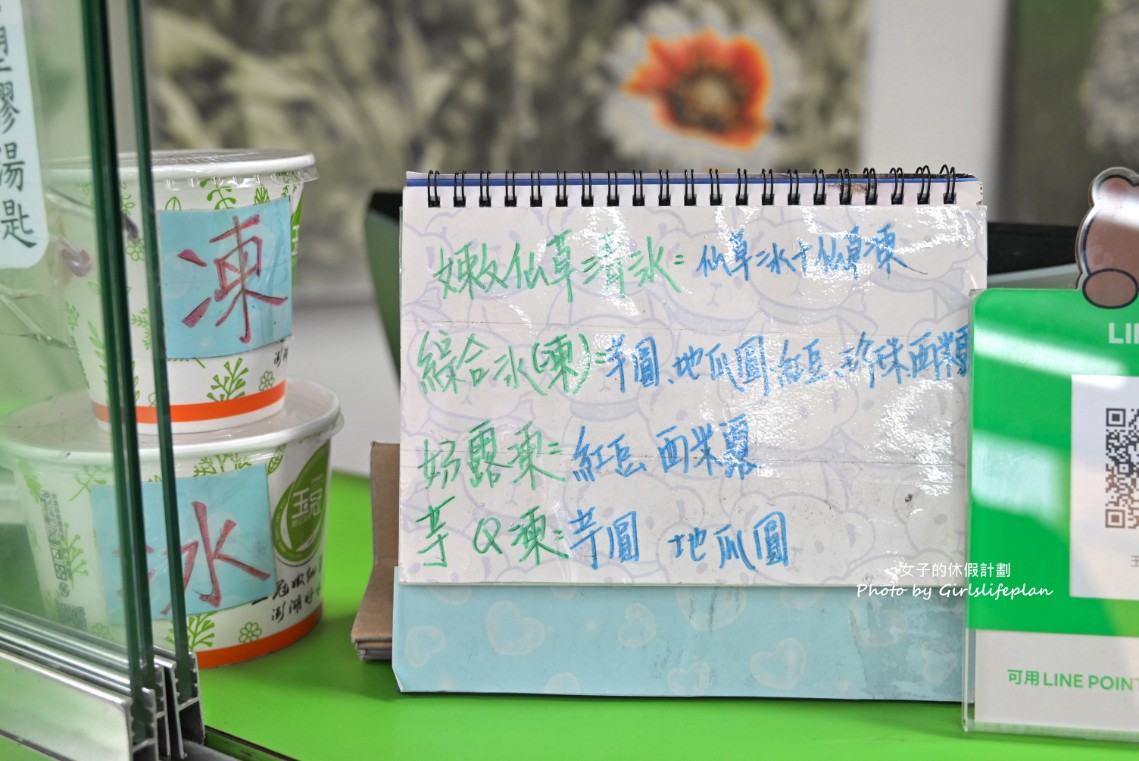 塑膠湯匙
凍
冰
玉冠
嫩仙草清冰=仙草冰+仙草凍
綜合冰(凍)=芋圓、地瓜圓、紅豆、珍珠西米露
奶露凍=紅豆 西米露
芋Q凍=芋圓 地瓜圓
女子的休假計劃
Photo by Girlslifeplan
可用LINE POINT